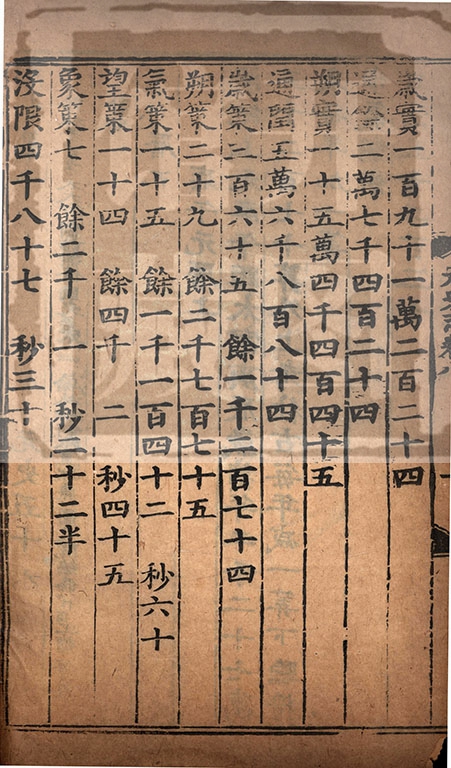 歲實一百九十一萬二百二十四
通餘二萬七千四百二十四
朔實一十五萬四千四百四十五
通閏五萬六千八百八十四
歲策三百六十五 餘一千二百七十四
朔策二十九 餘二千七百七十五
氣策一十五 餘一千一百四十二 秒六十
望策一十四 餘四千 二 秒四十五
象策七 餘二千 一 秒二十二半
沒限四千八十七 秒三十